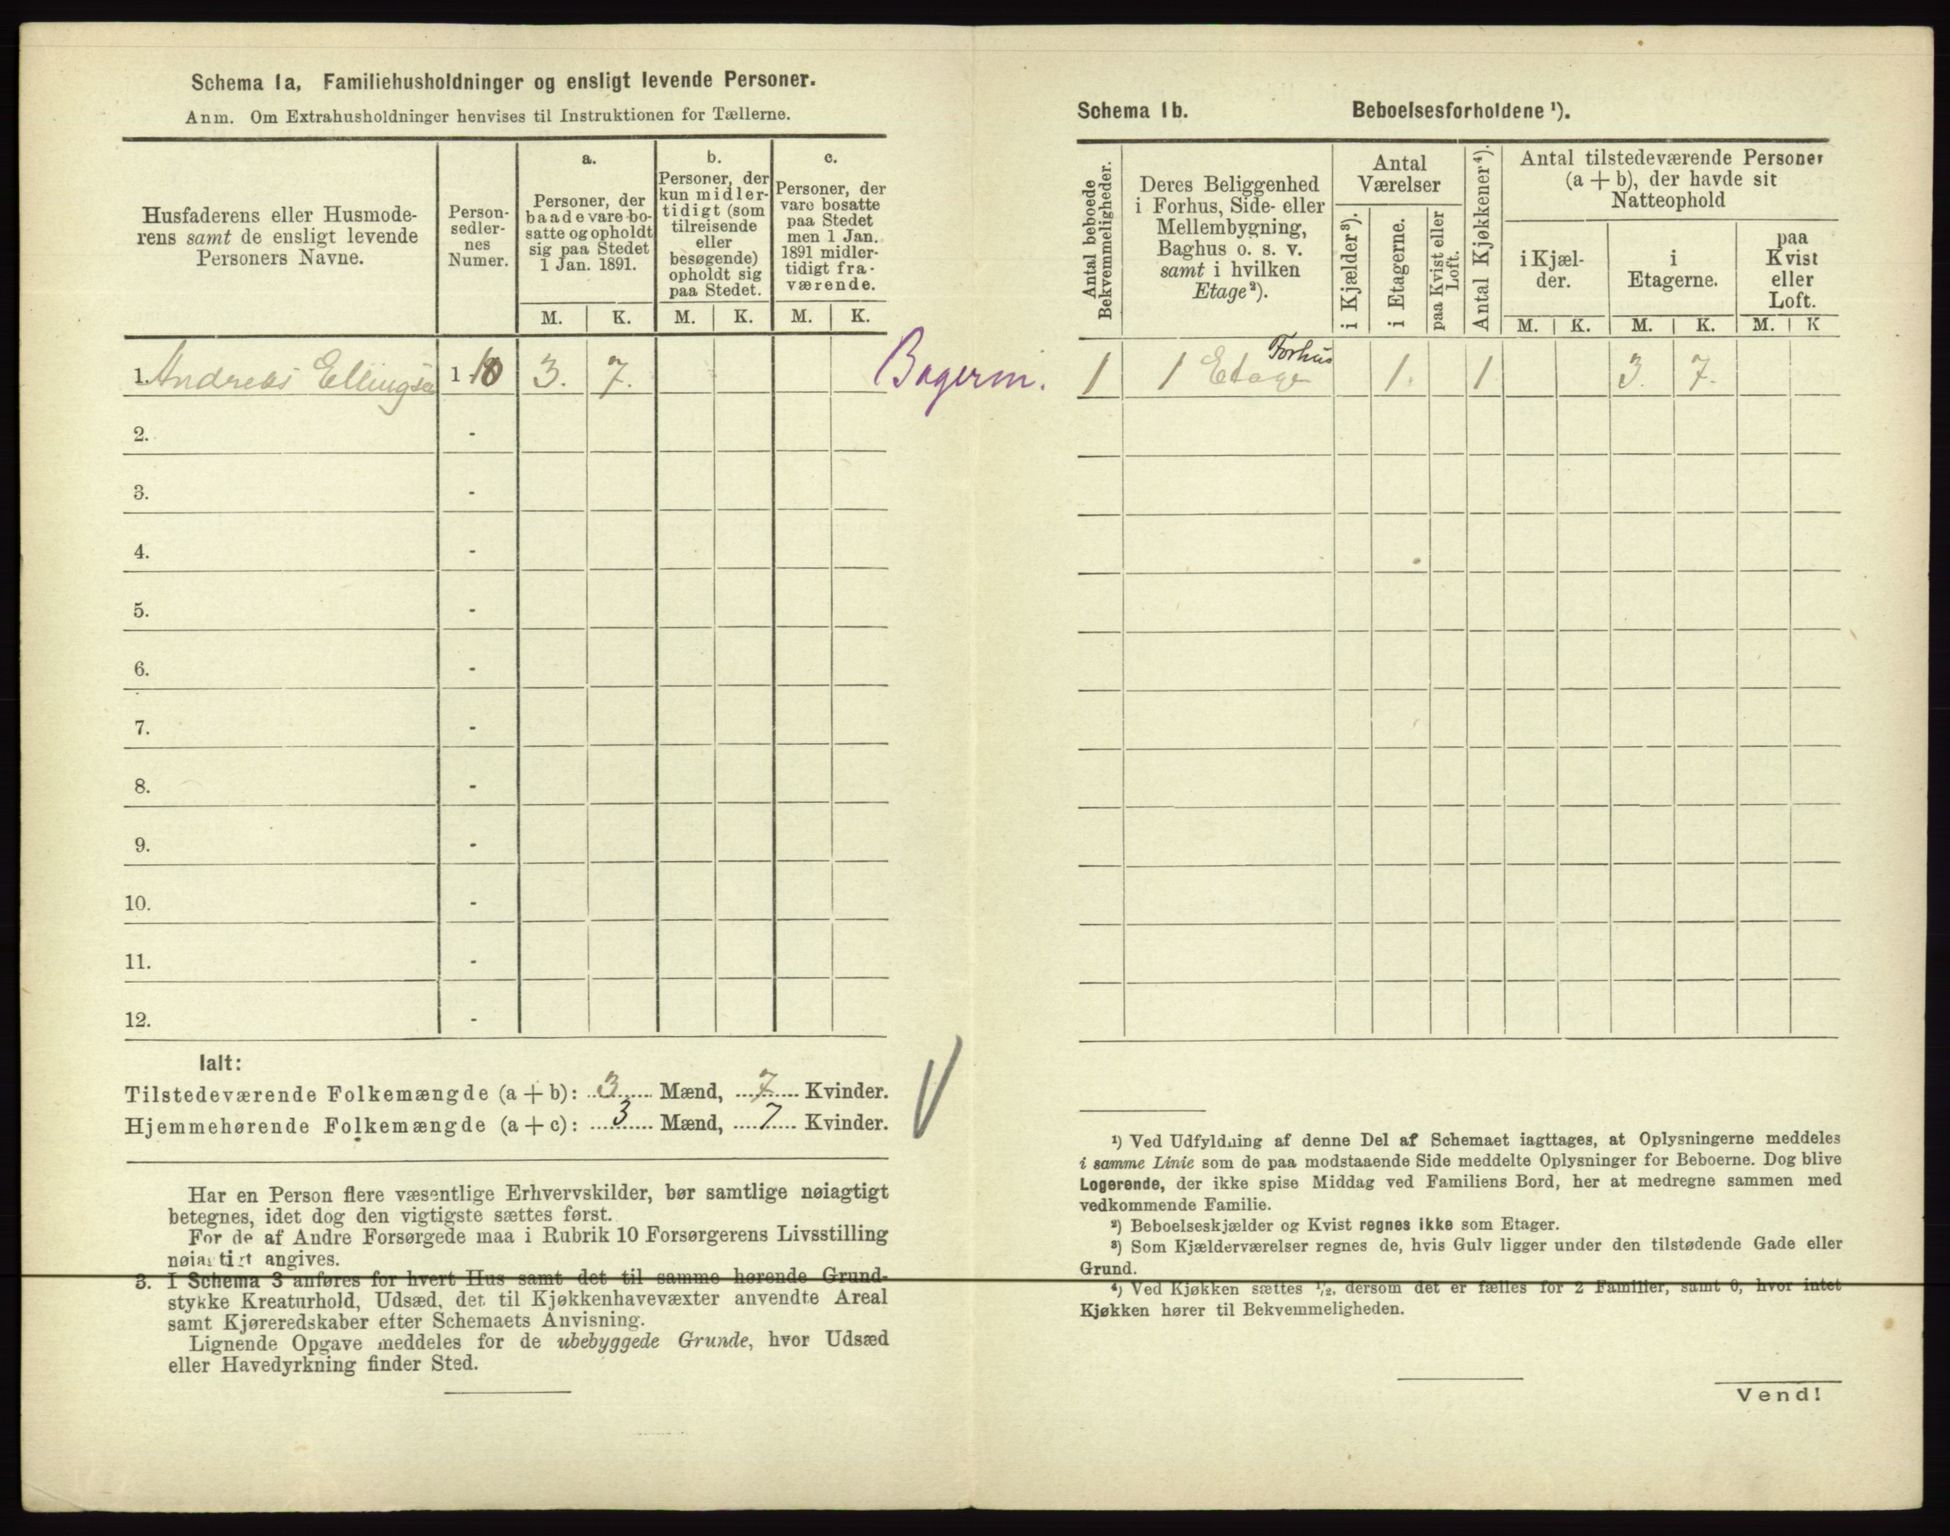 Schema 1a, Familiehusholdninger og ensligt levende Personer.
Anm. Om Extrahusholdninger henvises til Instruktionen for Tællerne.
Husfaderens eller Husmode-
rens samt de ensligt levende
Personers Navne.
Person-
sedler-
nes
Numer.
a.
Personer, der
baade vare bo-
satte og opholdt
sig paa Stedet
1 Jan. 1891.
b.
Personer, der
kun midler-
tidigt (som
tilreisende
eller
besøgende)
opholdt sig
paa Stedet.
c.
Personer, der
vare bosatte
paa Stedet
men 1 Jan.
1891 midler-
tidigt fra-
værende.
M. K. M. K. M. K.
1. Andreas Ellingsen 1 - 10 3. 7.
2. -
3. -
4. -
5. -
6. -
7. -
8. -
9. -
10. -
11. -
12. -
Ialt:
Tilstedeværende Folkemængde (a + b): 3 Mænd, 7 Kvinder.
Hjemmehørende Folkemængde (a + c): 3 Mænd, 7 Kvinder.
Har en Person flere væsentlige Erhvervskilder, bør samtlige nøiagtigt
betegnes, idet dog den vigtigste sættes først.
For de af Andre Forsørgede maa i Rubrik 10 Forsørgerens Livsstilling
nøiagtigt angives.
3. I Schema 3 anføres for hvert Hus samt det til samme hørende Grund-
stykke Kreaturhold, Udsæd, det til Kjøkkenhavevæxter anvendte Areal
samt Kjøreredskaber efter Schemaets Anvisning.
Lignende Opgave meddeles for de ubebyggede Grunde, hvor Udsæd
eller Havedyrkning finder Sted.
Schema 1b. Beboelsesforholdene ¹).
Antal beboede
Bekvemmeligheder.
Deres Beliggenhed
i Forhus, Side- eller
Mellembygning,
Baghus o. s. v.
samt i hvilken
Etage²).
Antal
Værelser
i Kjælder³).
i Etagerne.
paa Kvist eller
Loft.
Antal Kjøkkener⁴).
Antal tilstedeværende Personer
(a + b), der havde sit
Natteophold
i Kjæl-
der.
i
Etagerne.
paa
Kvist
eller
Loft.
M. K. M. K. M. K
1 1 Etage Forhus 1. 1 3. 7.
¹) Ved Udfyldning af denne Del af Schemaet iagttages, at Oplysningerne meddeles
i samme Linie som de paa modstaaende Side meddelte Oplysninger for Beboerne. Dog blive
Logerende, der ikke spise Middag ved Familiens Bord, her at medregne sammen med
vedkommende Familie.
²) Beboelseskjælder og Kvist regnes ikke som Etager.
³) Som Kjælderværelser regnes de, hvis Gulv ligger under den tilstødende Gade eller
Grund.
⁴) Ved Kjøkken sættes ¹/₂, dersom det er fælles for 2 Familier, samt 0, hvor intet
Kjøkken hører til Bekvemmeligheden.
Vend!